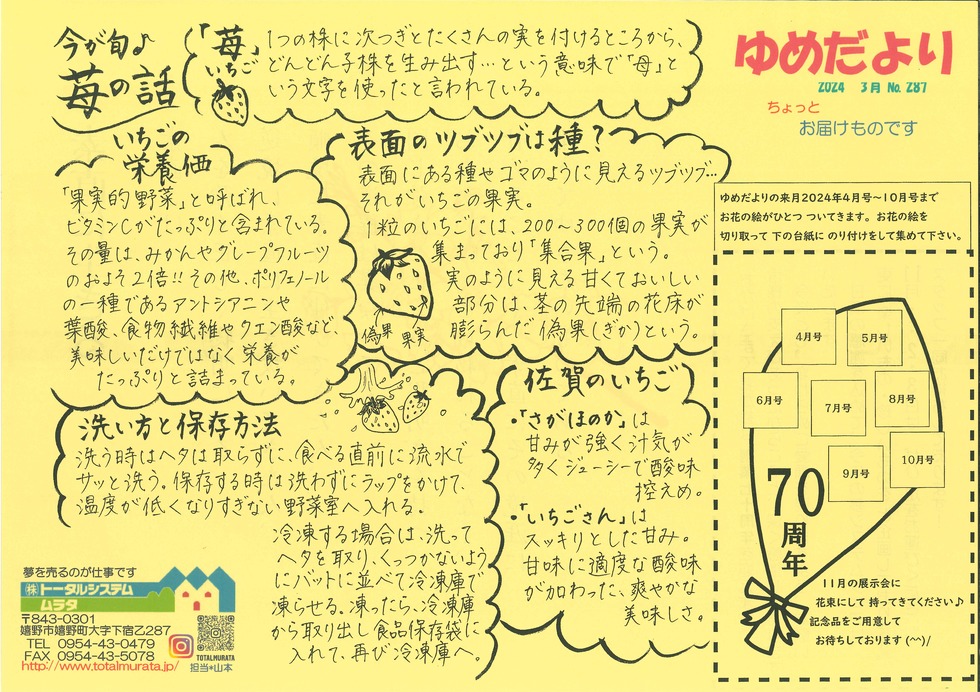 今が旬♪
苺の話
「苺」
いちご
1つの株に次つぎとたくさんの実を付けるところから、
どんどん子株を生み出す…という意味で「母」と
いう文字を使ったと言われている。
ゆめだより
2024 3月 No. 287
ちょっと
お届けものです
いちごの
栄養価
「果実的野菜」と呼ばれ、
ビタミンCがたっぷりと含まれている。
その量は、みかんやグレープフルーツ
のおよそ2倍!!その他、ポリフェノール
の一種であるアントシアニンや
葉酸、食物繊維やクエン酸など、
美味しいだけではなく栄養が
たっぷりと詰まっている。
表面のツブツブは種?
表面にある種やゴマのように見えるツブツブ…
それがいちごの果実。
1粒のいちごには、200～300個の果実が
集まっており「集合果」という。
実のように見える甘くておいしい
部分は、茎の先端の花床が
膨らんだ偽果(ぎか)という。
偽果 果実
洗い方と保存方法
洗う時はヘタは取らずに、食べる直前に流水で
サッと洗う。保存する時は洗わずにラップをかけて、
温度が低くなりすぎない野菜室へ入れる。
冷凍する場合は、洗って
ヘタを取り、くっつかないよう
にバットに並べて冷凍庫で
凍らせる。凍ったら、冷凍庫
から取り出し食品保存袋に
入れて、再び冷凍庫へ。
佐賀のいちご
・「さがほのか」は
甘みが強く汁気が
多くジューシーで酸味
控えめ。
・「いちごさん」は
スッキリとした甘み。
甘味に適度な酸味
が加わった、爽やかな
美味しさ。
ゆめだよりの来月2024年4月号～10月号まで
お花の絵がひとつ ついてきます。お花の絵を
切り取って 下の台紙に のり付けをして集めて下さい。
4月号
5月号
6月号
7月号
8月号
9月号
10月号
70
周年
11月の展示会に
花束にして 持ってきてください♪
記念品をご用意して
お待ちしております(^^)/
夢を売るのが仕事です
㈱トータルシステム
ムラタ
〒843-0301
嬉野市嬉野町大字下宿乙287
TEL 0954-43-0479
FAX 0954-43-5078
http://www.totalmurata.jp/
TOTALMURATA
担当*山本